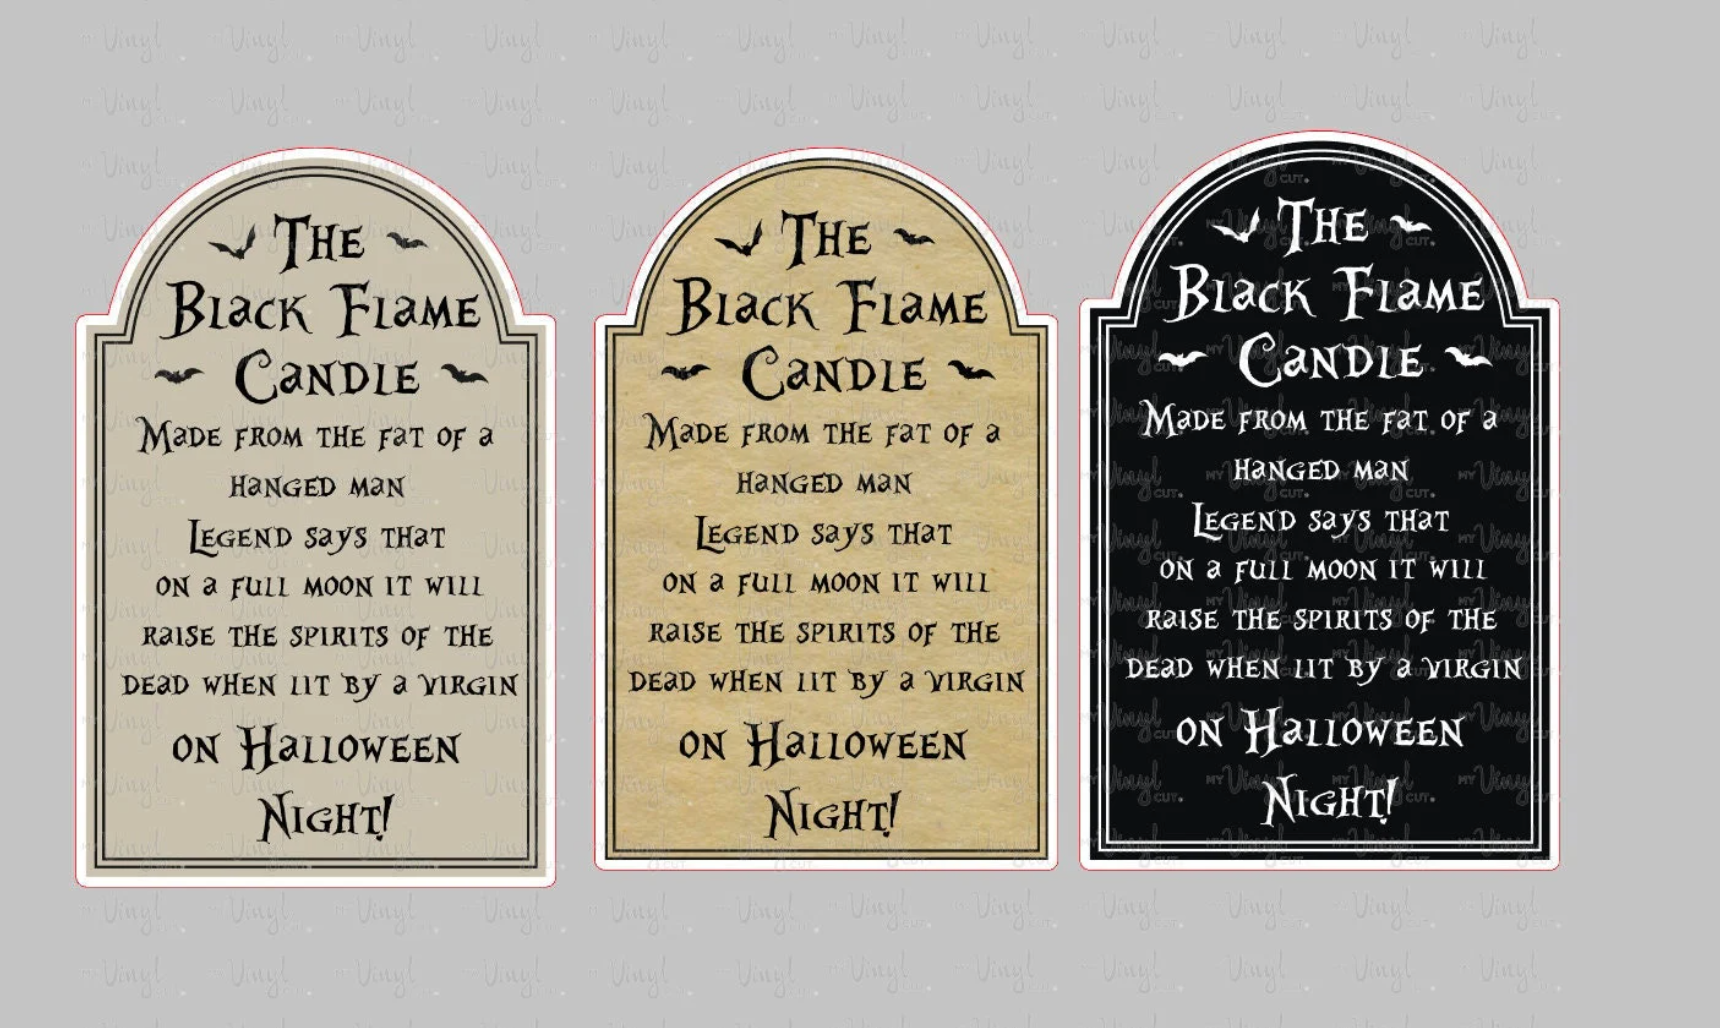 The
Black Flame
Candle
Made from the fat of a
hanged man
Legend says that
on a full moon it will
raise the spirits of the
dead when lit by a virgin
on Halloween
Night!
The
Black Flame
Candle
Made from the fat of a
hanged man
Legend says that
on a full moon it will
raise the spirits of the
dead when lit by a virgin
on Halloween
Night!
The
Black Flame
Candle
Made from the fat of a
hanged man
Legend says that
on a full moon it will
raise the spirits of the
dead when lit by a virgin
on Halloween
Night!
MY Vinyl CUT.